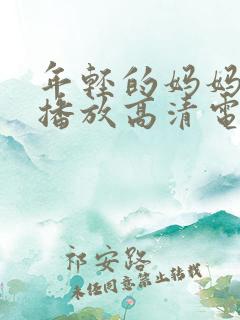 年轻的妈妈
播放高清电
祁安路
未经同意禁止转载